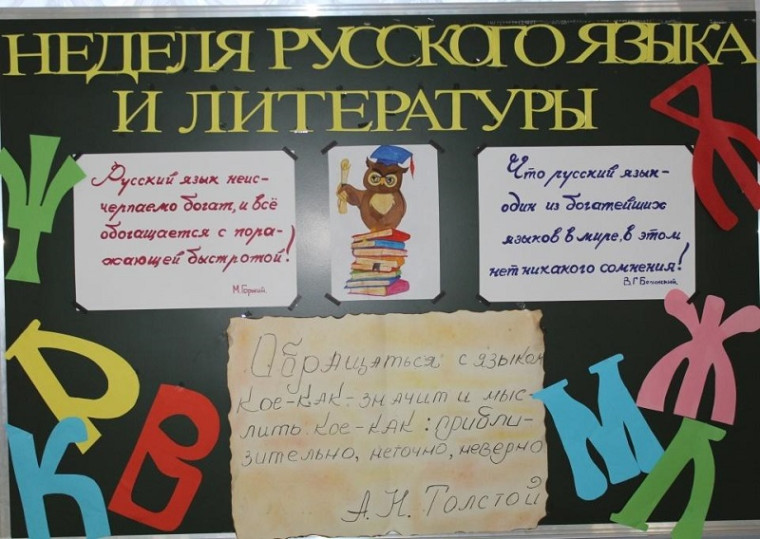 НЕДЕЛЯ РУССКОГО ЯЗЫКА
И ЛИТЕРАТУРЫ
Русский язык неис-
черпаемо богат, и всё
обогащается с пора-
жающей быстротой!
М.Горький.
Что русский язык-
один из богатейших
языков в мире, в этом
нет никакого сомнения!
В.Г.Белинский.
Обращаться с языком
кое-как-значит и мыс-
лить кое-как: прибли-
зительно, неточно, неверно
А.Н.Толстой
Ф
Я
Р
К
В
М
Ж
Л